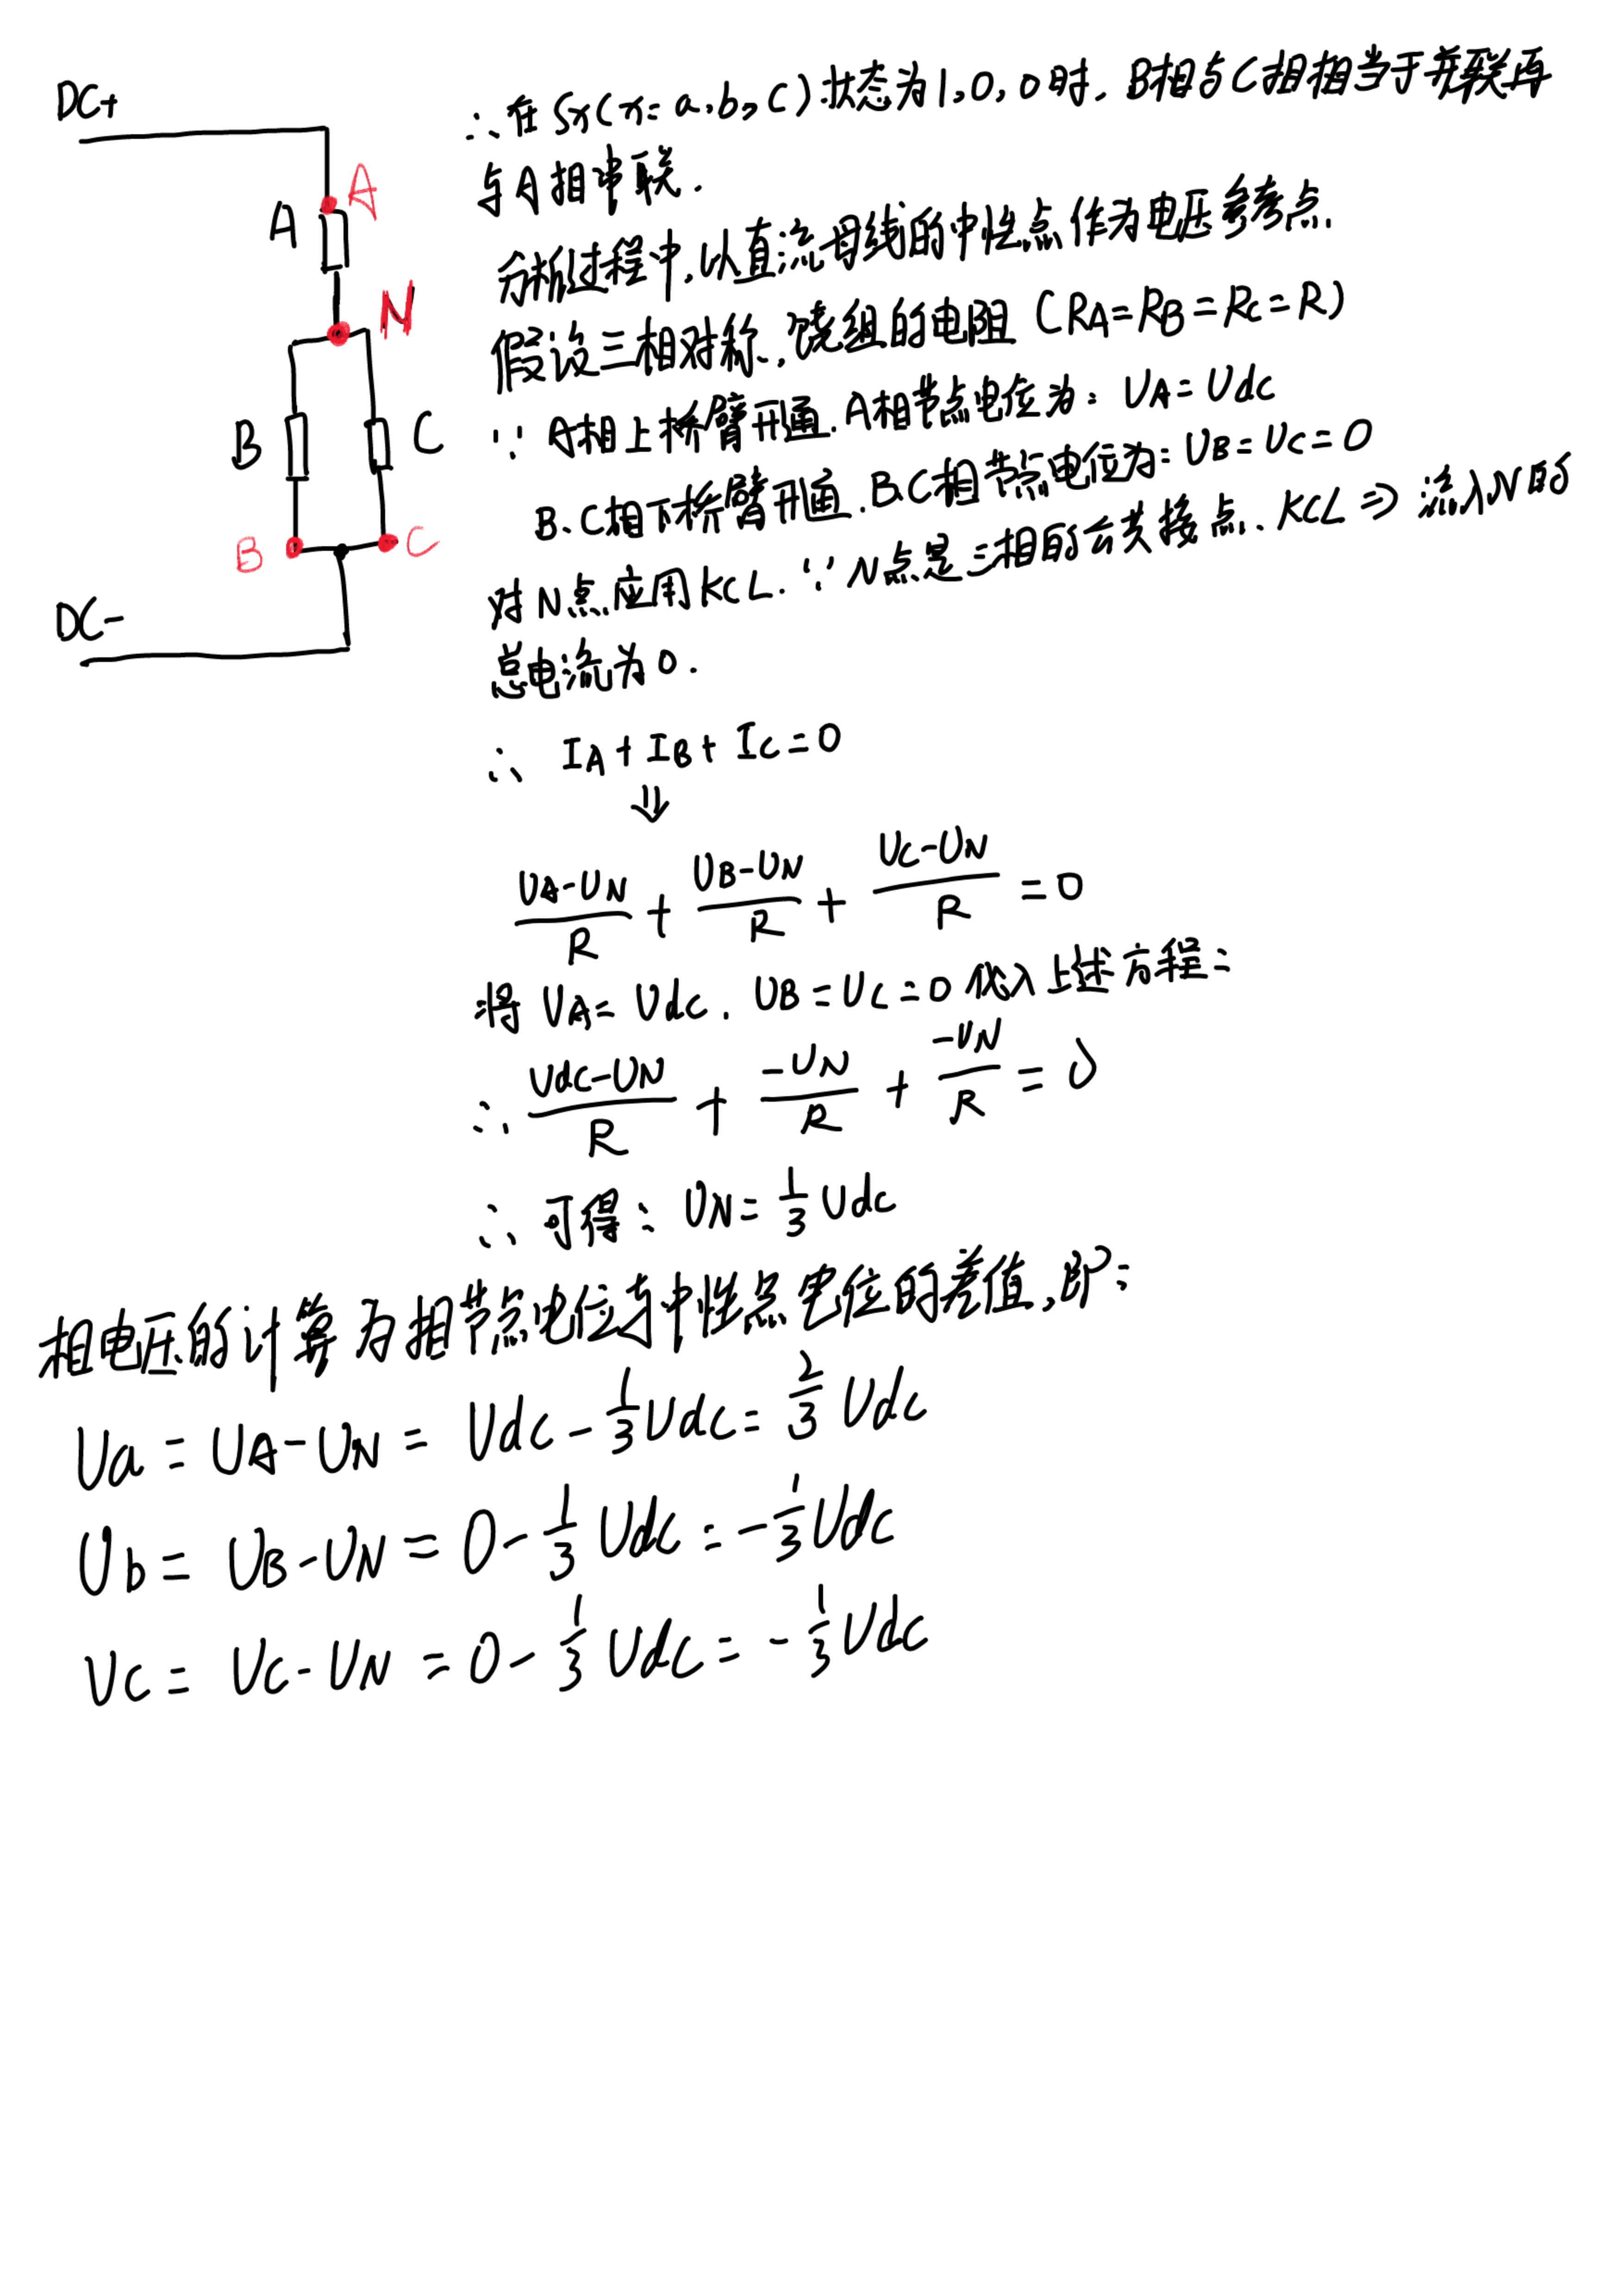 DC+
A
A
N
B
C
B
C
DC-
∴在Sx(x=a,b,c)状态为1,0,0时,B相与C相相当于并联再
与A相串联.
分析过程中,以直流母线的中性点作为电压参考点.
假设三相对称,绕组的电阻(RA=RB=Rc=R)
∵ A相上桥臂开通.A相节点电位为:UA=Udc
B、C相下桥臂开通.B.C相节点电位为:UB=UC=0
对N点应用KCL.∵N点是三相的公共接点.KCL⇒流入N的
总电流为0.
∴ IA+IB+IC=0
⇓
(UA-UN)/R + (UB-UN)/R + (UC-UN)/R = 0
将UA=Udc.UB=UC=0代入上述方程:
∴ (Udc-UN)/R + (-UN)/R + (-UN)/R = 0
∴可得:UN=1/3 Udc
相电压的计算为相节点电位与中性点电位的差值,即:
Ua=UA-UN=Udc-1/3Udc=2/3Udc
Ub=UB-UN=0-1/3Udc=-1/3Udc
Uc=UC-UN=0-1/3Udc=-1/3Udc